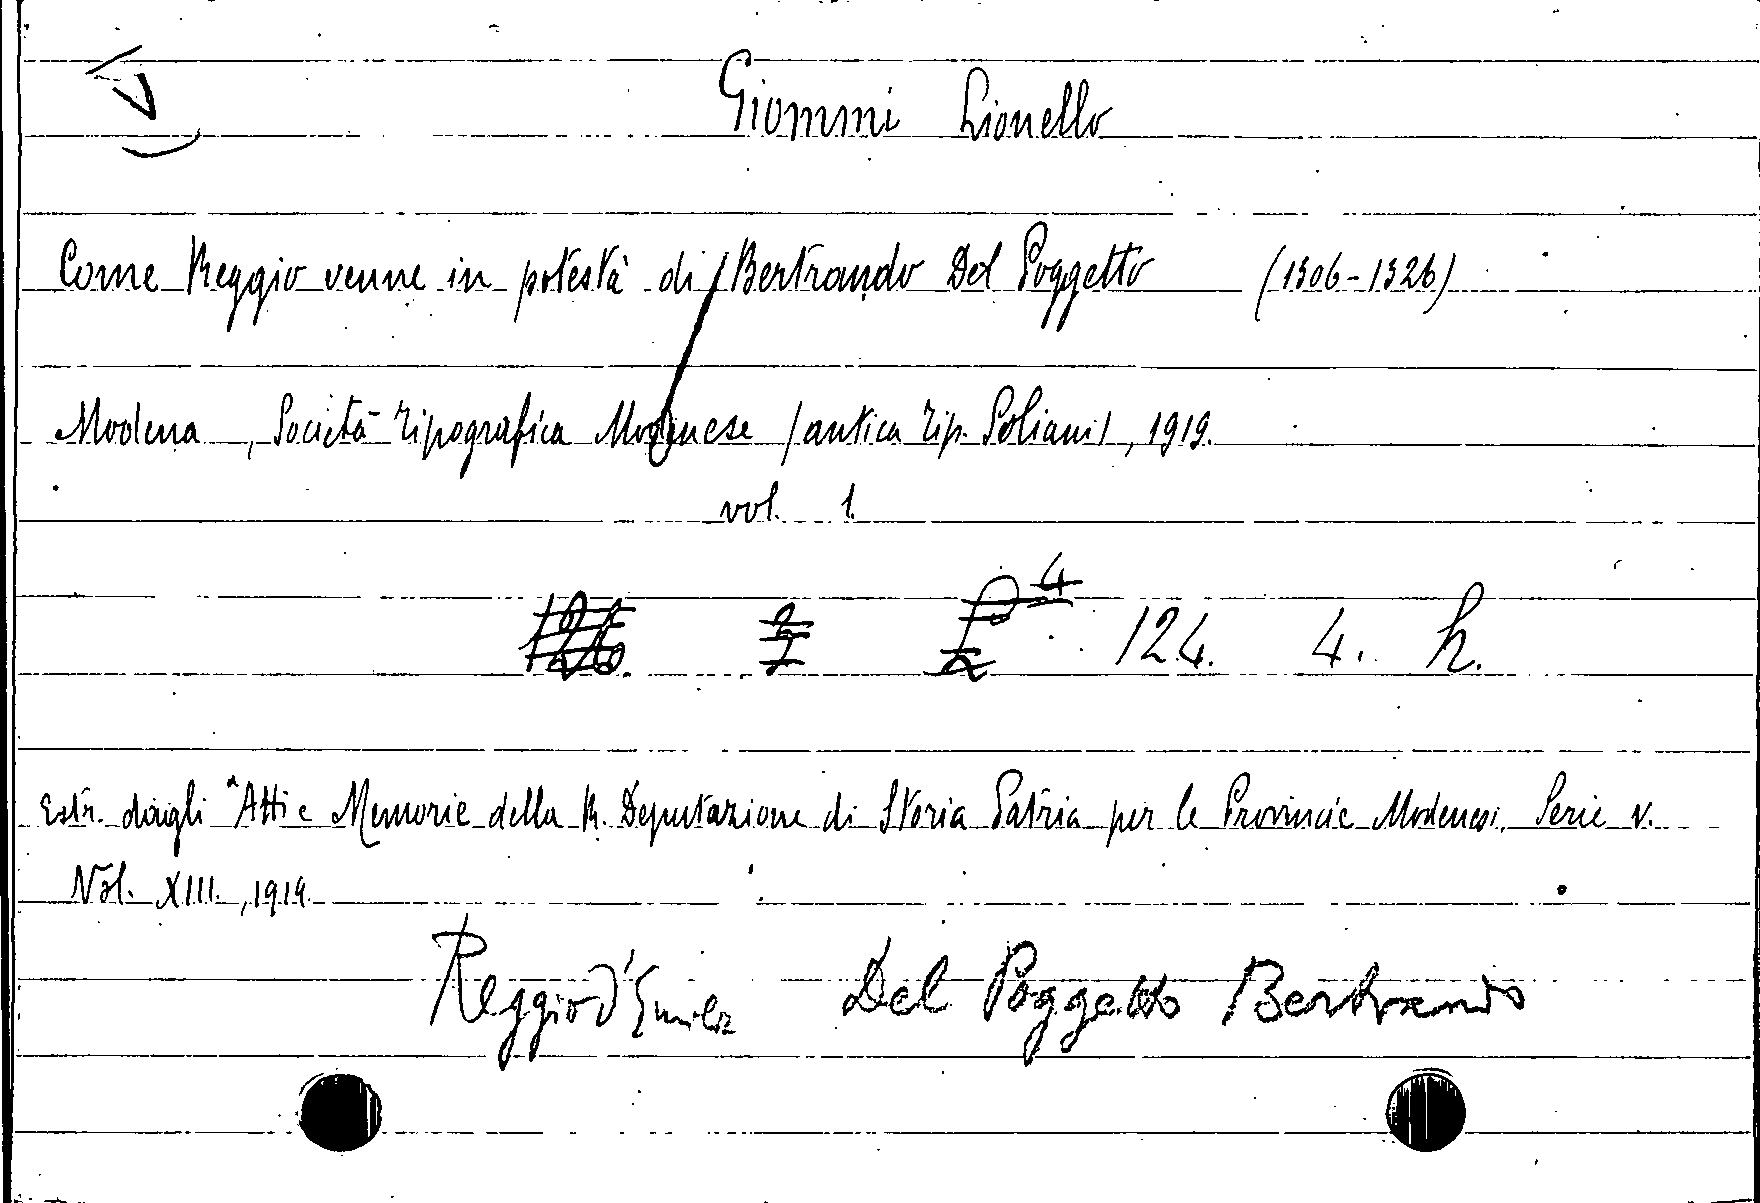 Giommi Lionello
Come Reggio venne in potestà di Bertrando Del Poggetto (1306-1326)
Modena, Società Tipografica Modenese (antica Tip. Soliani), 1919.
vol. 1.
124. 4. h.
Estr. dagli "Atti e Memorie della R. Deputazione di Storia Patria per le Provincie Modenesi. Serie V.
Vol. XIII., 1919.
Reggio d'Emilia Del Poggetto Bertrando